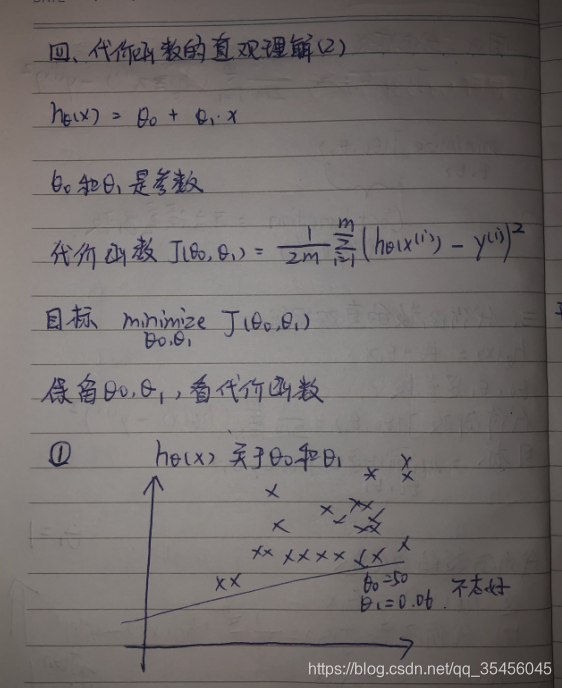 四、代价函数的直观理解(2)
hθ(x) = θ0 + θ1·x
θ0和θ1是参数
代价函数 J(θ0,θ1) = 1/2m m∑i=1 (hθ(x(i)) - y(i))2
目标 minimize J(θ0,θ1)
θ0,θ1
保留θ0,θ1,看代价函数
① hθ(x) 关于θ0和θ1
θ0=50
θ1=0.06 不太好
https://blog.csdn.net/qq_35456045